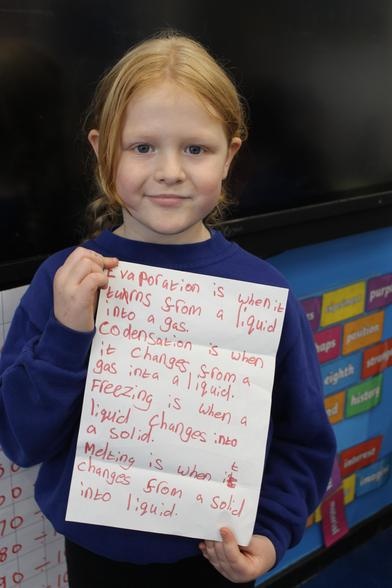 Evaporation is when it
turns from a liquid
into a gas.
Codensation is when
it changes from a
gas inta a liquid.
Freezing is when a
liquid changes into
a solid.
Melting is when it
changes from a solid
into liquid.
experiment
purp
haps
position
stra
eighth
history
interest
imagin
material
70
80
90